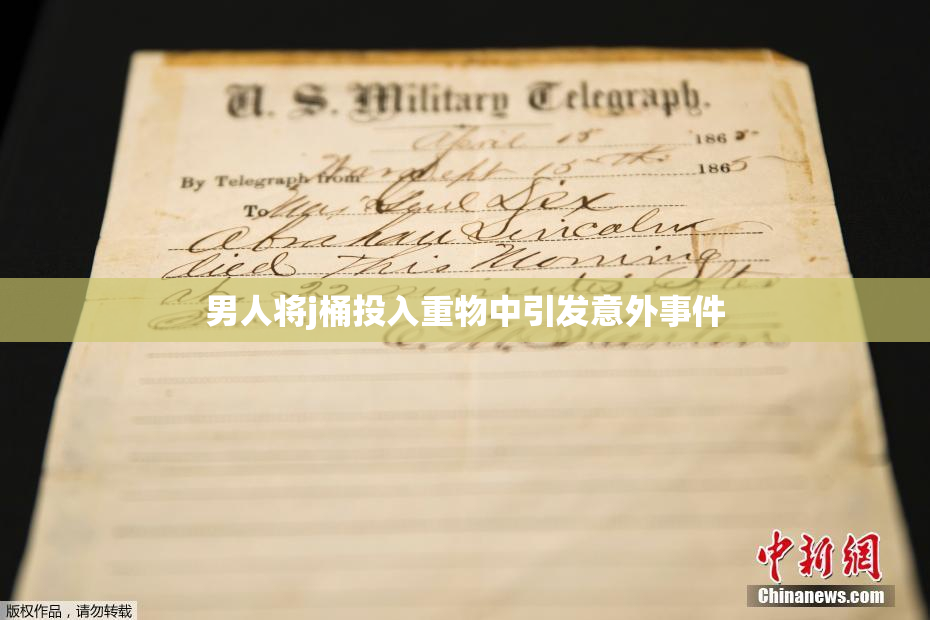 U. S. Military Telegraph.
April 15 1865
By Telegraph from War Dept 15th 1865
To Maj Genl Dix
Abraham Lincoln
died This Morning
at 22 minutes after
男人将j桶投入重物中引发意外事件
E. M. Stanton
中新网
Chinanews.com
版权作品，请勿转载